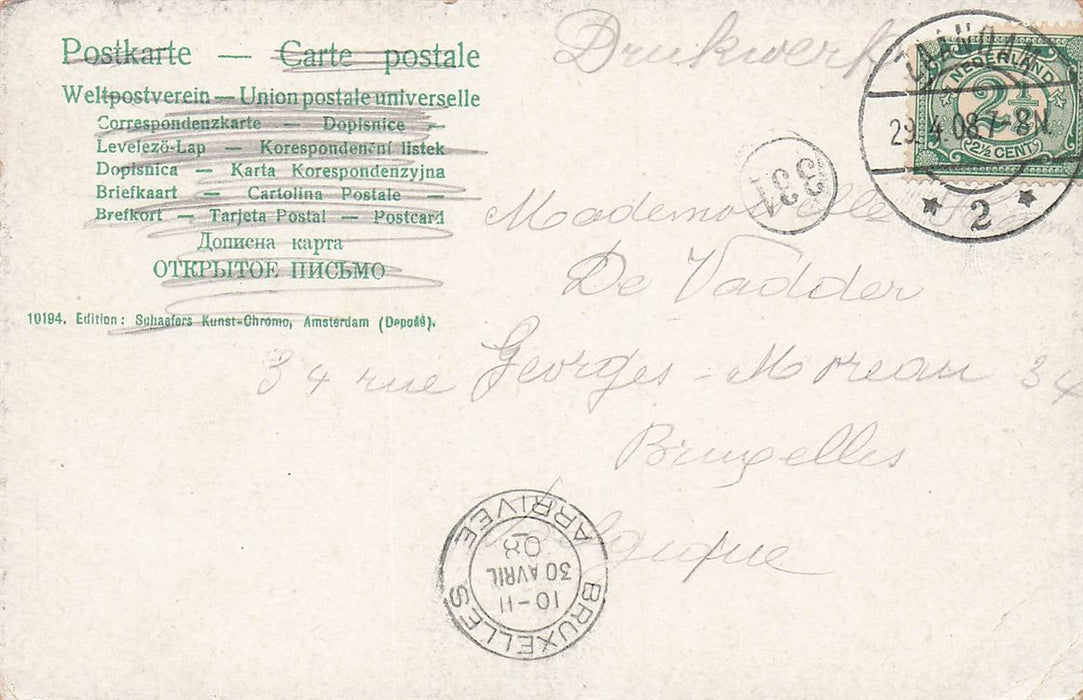 Postkarte — Carte postale
Weltpostverein — Union postale universelle
Correspondenzkarte — Dopisnice —
Levelező-Lap — Korespondenční listek
Dopisnica — Karta Korespondenzyjna
Briefkaart — Cartolina Postale —
Brefkort — Tarjeta Postal — Postcard
Дописна карта
ОТКРЫТОЕ ПИСЬМО
10194. Edition: Schaefers Kunst-Chromo, Amsterdam (Deposé).
Drukwerk
ZAANDAM
29.4.08 7-8N
2
NEDERLAND
2½
2½ CENT
331
Mademoiselle
De Vadder
34 rue Georges-Moreau 34
Bruxelles
Belgique
BRUXELLES
10-11
30 AVRIL
08
ARRIVEE